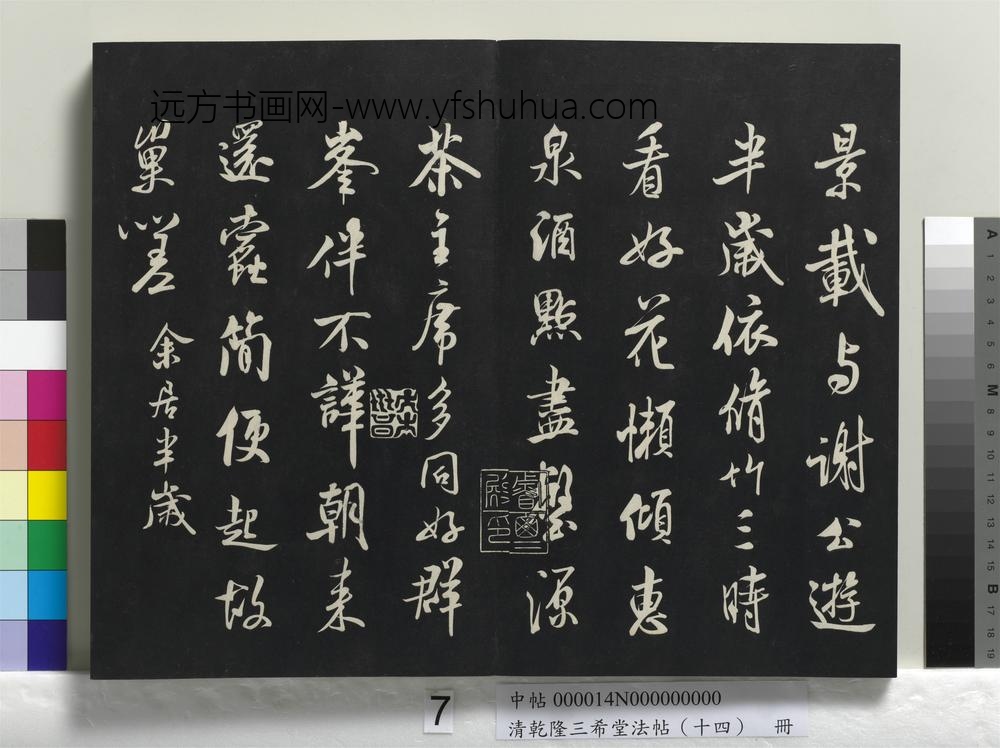 远方书画网-www.yfshuhua.com
景載与謝公遊
半歲依脩竹三時
看好花懶傾惠
泉酒點盡壑源
茶主席多同好群
峯伴不譁朝来
還蠹简便起故
巢嗟 余居半歲
7
中帖 000014N000000000
清乾隆三希堂法帖（十四） 冊
A
1
2
3
4
5
6
M
8
9
10
11
12
13
14
15
B
17
18
19